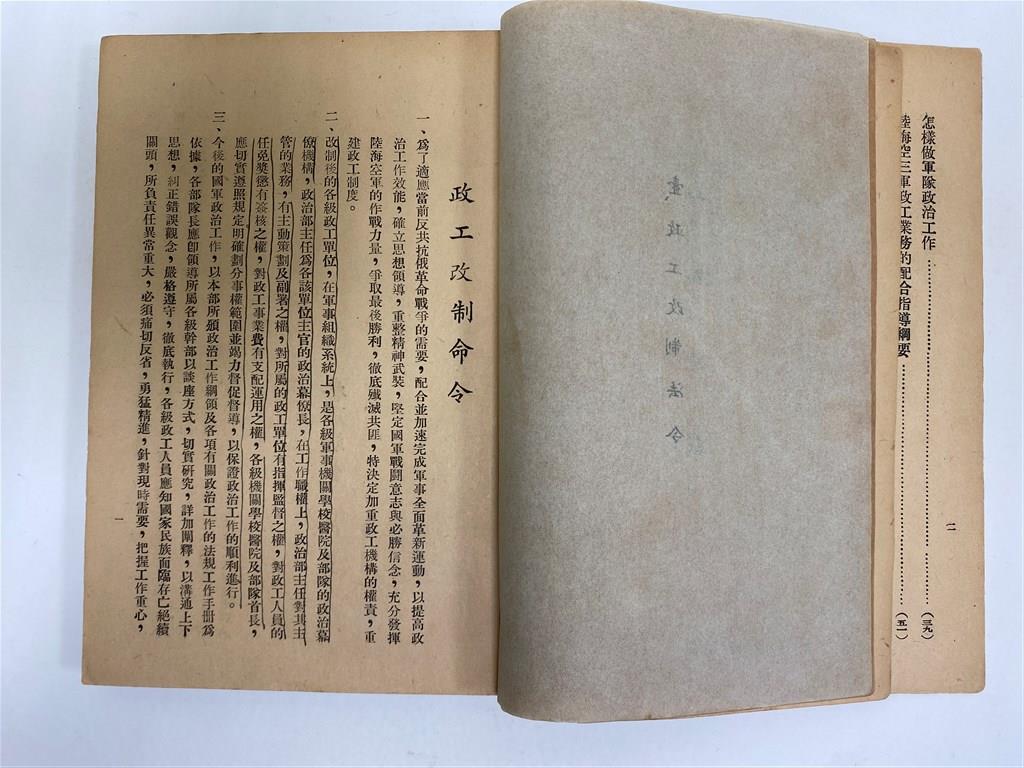 怎樣做軍隊政治工作……………………………………（三九）
陸海空三軍政工業務的配合指導綱要……………………（五一）
二
壹 政工改制法令
政工改制命令
一、為了適應當前反共抗俄革命戰爭的需要，配合並加速完成軍事全面革新運動，以提高政
治工作效能，確立思想領導，重整精神武裝，堅定國軍戰鬪意志與必勝信念，充分發揮
陸海空軍的作戰力量，爭取最後勝利，徹底殲滅共匪，特決定加重政工機構的權責，重
建政工制度。
二、改制後的各級政工單位，在軍事組織系統上，是各級軍事機關學校醫院及部隊的政治幕
僚機構，政治部主任為各該單位主官的政治幕僚長，在工作職權上，政治部主任對其主
管的業務，有主動策劃及副署之權，對所屬的政工單位有指揮監督之權，對政工人員的
任免獎懲有簽核之權，對政工事業費有支配運用之權，各級機關學校醫院及部隊首長，
應切實遵照規定明確劃分事權範圍並竭力督促督導，以保證政治工作的順利進行。
三、今後的國軍政治工作，以本部所頒政治工作綱領及各項有關政治工作的法規工作手冊為
依據，各部隊長應卽領導所屬各級幹部以談座方式，切實研究，詳加闡釋，以溝通上下
思想，糾正錯誤觀念，嚴格遵守，徹底執行，各級政工人員應知國家民族面臨存亡絕續
關頭，所負責任異常重大，必須痛切反省，勇猛精進，針對現時需要，把握工作重心，
一